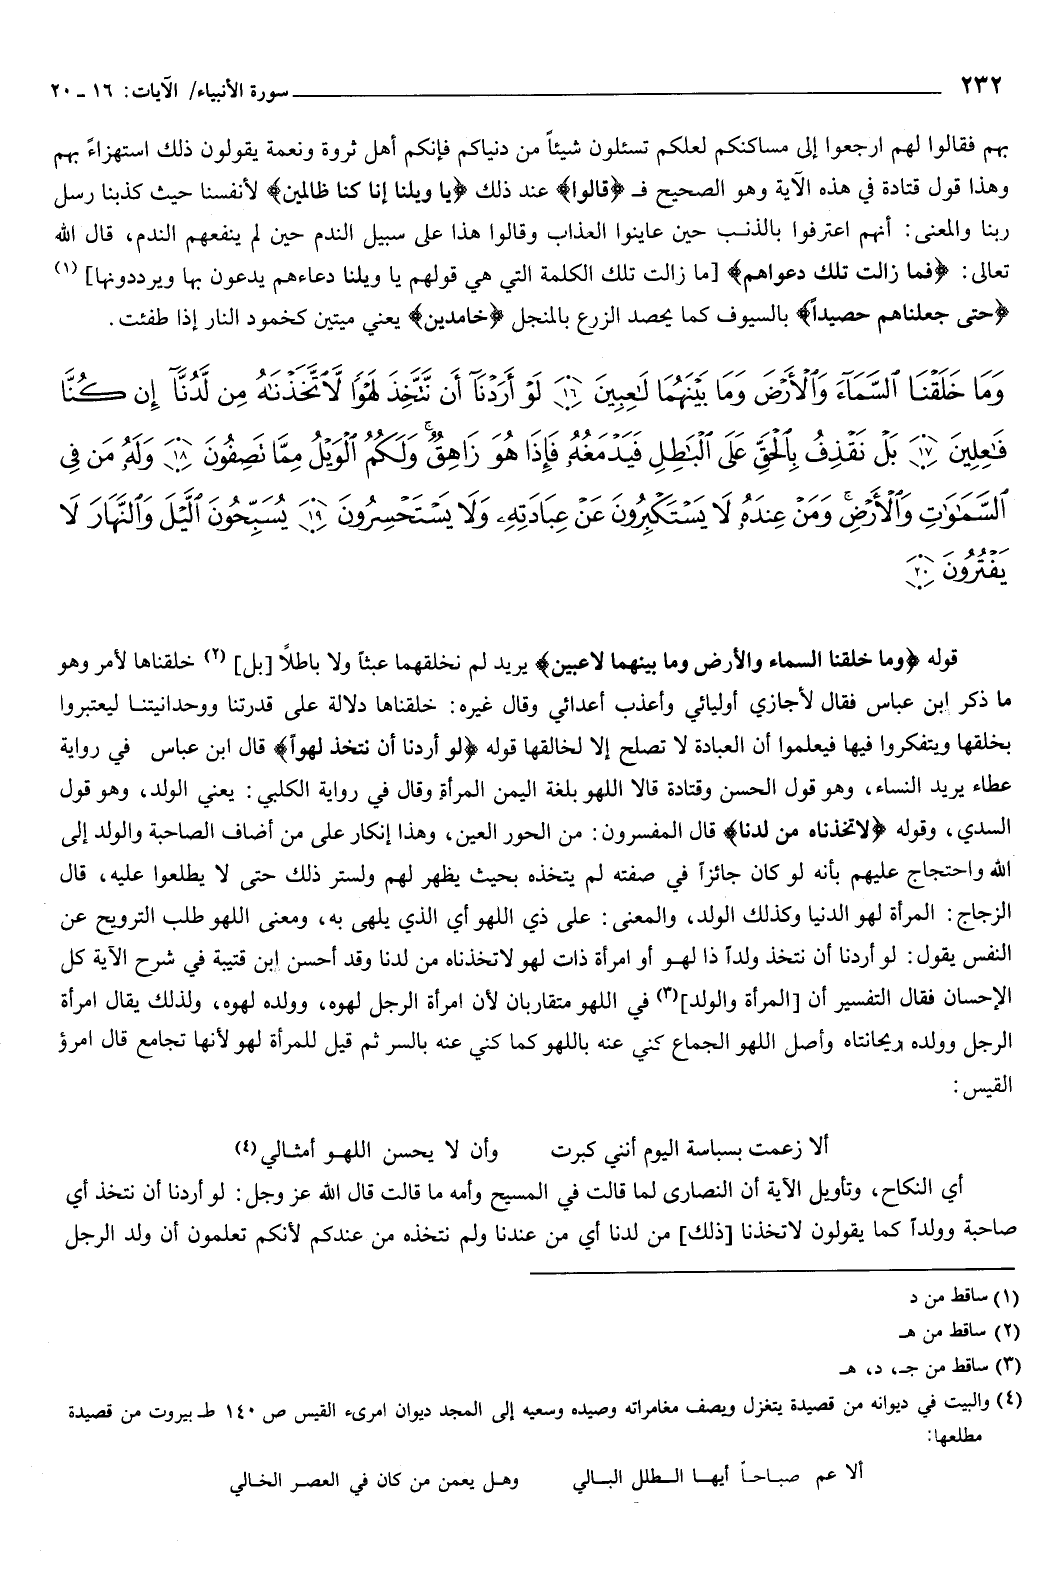 ٢٣٢ سورة الأنبياء/ الآيات: ١٦ ـ ٢٠
بهم فقالوا لهم ارجعوا إلى مساكنكم لعلكم تسئلون شيئاً من دنياكم فإنكم أهل ثروة ونعمة يقولون ذلك استهزاءً بهم
وهذا قول قتادة في هذه الآية وهو الصحيح فـ ﴿قالوا﴾ عند ذلك ﴿يا ويلنا إنا كنا ظالمين﴾ لأنفسنا حيث كذبنا رسل
ربنا والمعنى: أنهم اعترفوا بالذنب حين عاينوا العذاب وقالوا هذا على سبيل الندم حين لم ينفعهم الندم، قال الله
تعالى: ﴿فما زالت تلك دعواهم﴾ [ما زالت تلك الكلمة التي هي قولهم يا ويلنا دعاءهم يدعون بها ويرددونها] (١)
﴿حتى جعلناهم حصيداً﴾ بالسيوف كما يحصد الزرع بالمنجل ﴿خامدين﴾ يعني ميتين كخمود النار إذا طفئت.
وَمَا خَلَقْنَا ٱلسَّمَآءَ وَٱلْأَرْضَ وَمَا بَيْنَهُمَا لَٰعِبِينَ ﴿١٦﴾ لَوْ أَرَدْنَآ أَن نَّتَّخِذَ لَهْوًا لَّٱتَّخَذْنَٰهُ مِن لَّدُنَّآ إِن كُنَّا
فَٰعِلِينَ ﴿١٧﴾ بَلْ نَقْذِفُ بِٱلْحَقِّ عَلَى ٱلْبَٰطِلِ فَيَدْمَغُهُۥ فَإِذَا هُوَ زَاهِقٌ ۚ وَلَكُمُ ٱلْوَيْلُ مِمَّا تَصِفُونَ ﴿١٨﴾ وَلَهُۥ مَن فِى
ٱلسَّمَٰوَٰتِ وَٱلْأَرْضِ ۚ وَمَنْ عِندَهُۥ لَا يَسْتَكْبِرُونَ عَنْ عِبَادَتِهِۦ وَلَا يَسْتَحْسِرُونَ ﴿١٩﴾ يُسَبِّحُونَ ٱلَّيْلَ وَٱلنَّهَارَ لَا
يَفْتُرُونَ ﴿٢٠﴾
قوله ﴿وما خلقنا السماء والأرض وما بينهما لاعبين﴾ يريد لم نخلقهما عبثاً ولا باطلاً [بل] (٢) خلقناها لأمر وهو
ما ذكر ابن عباس فقال لأجازي أوليائي وأعذب أعدائي وقال غيره: خلقناها دلالة على قدرتنا ووحدانيتنا ليعتبروا
بخلقها ويتفكروا فيها فيعلموا أن العبادة لا تصلح إلا لخالقها قوله ﴿لو أردنا أن نتخذ لهواً﴾ قال ابن عباس في رواية
عطاء يريد النساء، وهو قول الحسن وقتادة قالا اللهو بلغة اليمن المرأة وقال في رواية الكلبي: يعني الولد، وهو قول
السدي، وقوله ﴿لاتخذناه من لدنا﴾ قال المفسرون: من الحور العين، وهذا إنكار على من أضاف الصاحبة والولد إلى
الله واحتجاج عليهم بأنه لو كان جائزاً في صفته لم يتخذه بحيث يظهر لهم ولستر ذلك حتى لا يطلعوا عليه، قال
الزجاج: المرأة لهو الدنيا وكذلك الولد، والمعنى: على ذي اللهو أي الذي يلهى به، ومعنى اللهو طلب الترويح عن
النفس يقول: لو أردنا أن نتخذ ولداً ذا لهو أو امرأة ذات لهو لاتخذناه من لدنا وقد أحسن إبن قتيبة في شرح الآية كل
الإحسان فقال التفسير أن [المرأة والولد](٣) في اللهو متقاربان لأن امرأة الرجل لهوه، وولده لهوه، ولذلك يقال امرأة
الرجل وولده ريحانتاه وأصل اللهو الجماع كني عنه باللهو كما كني عنه بالسر ثم قيل للمرأة لهو لأنها تجامع قال امرؤ
القيس:
ألا زعمت بسباسة اليوم أنني كبرت وأن لا يحسن اللهو أمثالي (٤)
أي النكاح، وتأويل الآية أن النصارى لما قالت في المسيح وأمه ما قالت قال الله عز وجل: لو أردنا أن نتخذ أي
صاحبة وولداً كما يقولون لاتخذنا [ذلك] من لدنا أي من عندنا ولم نتخذه من عندكم لأنكم تعلمون أن ولد الرجل
(١) ساقط من د
(٢) ساقط من هـ
(٣) ساقط من جـ، د، هـ
(٤) والبيت في ديوانه من قصيدة يتغزل ويصف مغامراته وصيده وسعيه إلى المجد ديوان امرىء القيس ص ١٤٠ طـ بيروت من قصيدة
مطلعها:
ألا عم صباحاً أيها الطلل البالي وهل يعمن من كان في العصر الخالي